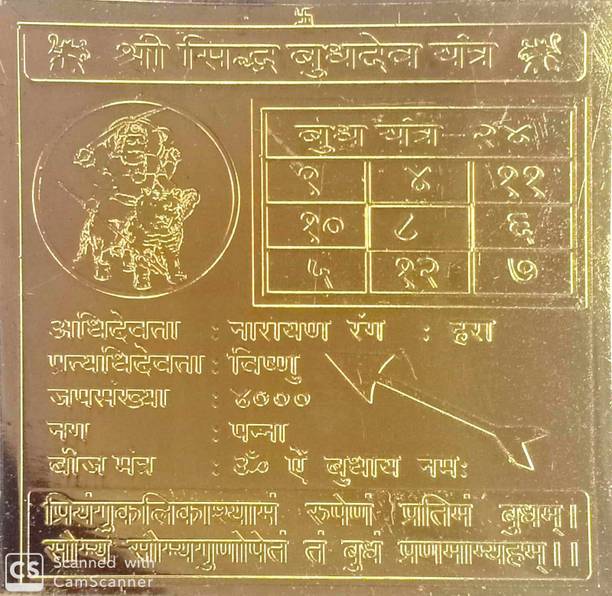 श्री सिद्ध बुधदेव यंत्र
बुध यंत्र २४
९ ४ ११
१० ८ ६
५ १२ ७
अधिदेवत्ता : नारायण रंग : हरा
प्रत्याधिदेवत्ता : विष्णु
जपसंख्या : ४०००
नग : पन्ना
बीज मंत्र : ॐ ऐं बुधाय नमः
प्रियंगुकलिकाश्यामं रुपेणं प्रतिमं बुधम्।
सौम्यं सौम्यगुणोपेतं तं बुधं प्रणमाम्यहम्।।
CS Scanned with
CamScanner